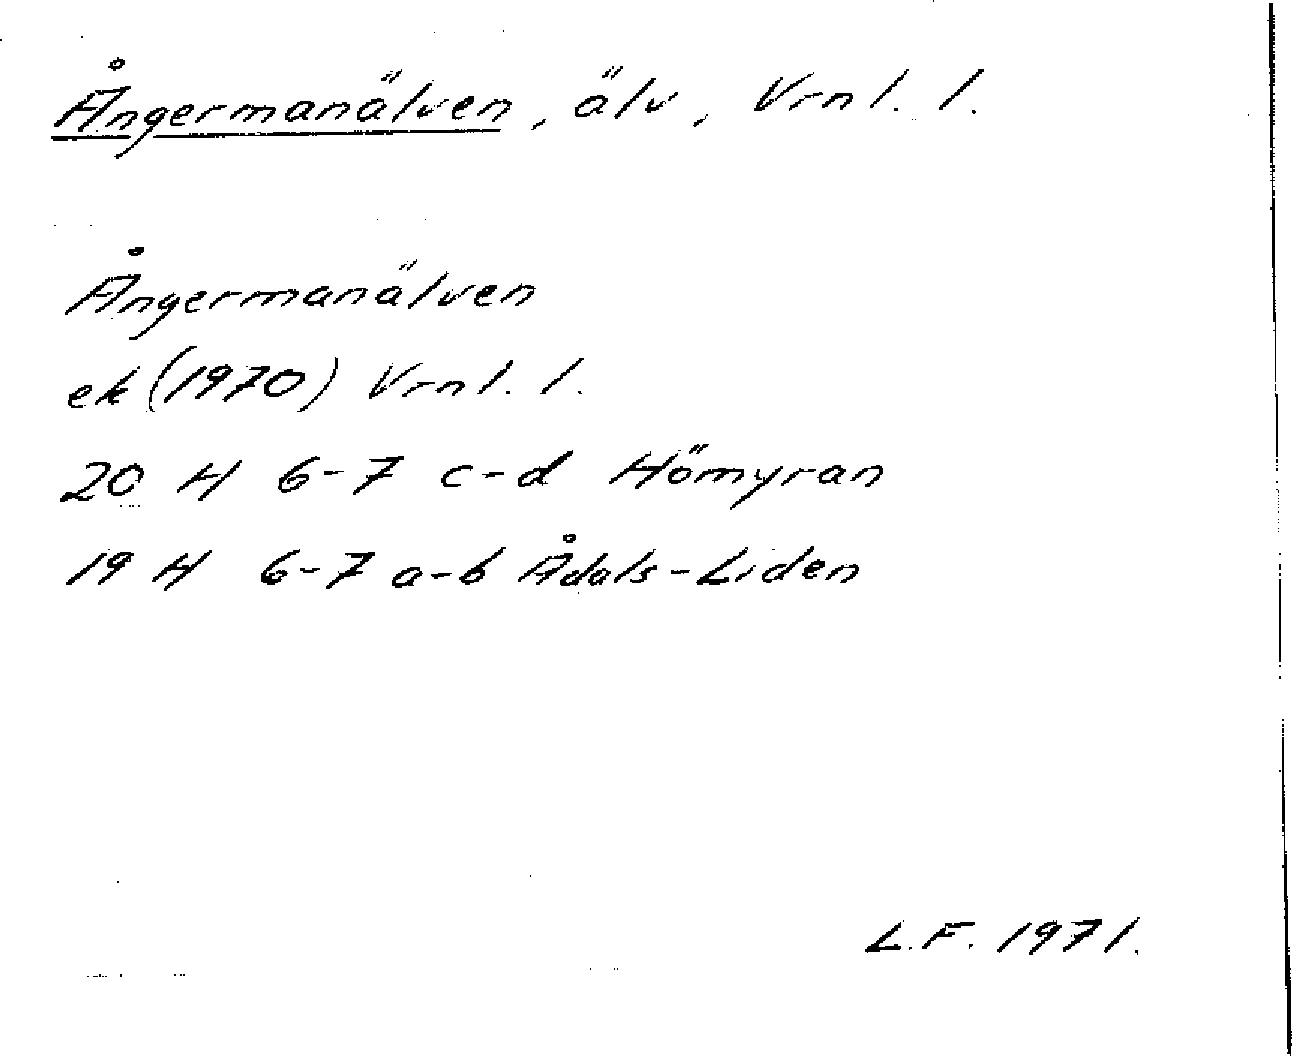 Ångermanälven, älv, Vrnl. l.
Ångermanälven
ek (1970) Vrnl. l.
20 H 6-7 c-d Hömyran
19 H 6-7 a-b Ådals-Liden
L.F. 1971.